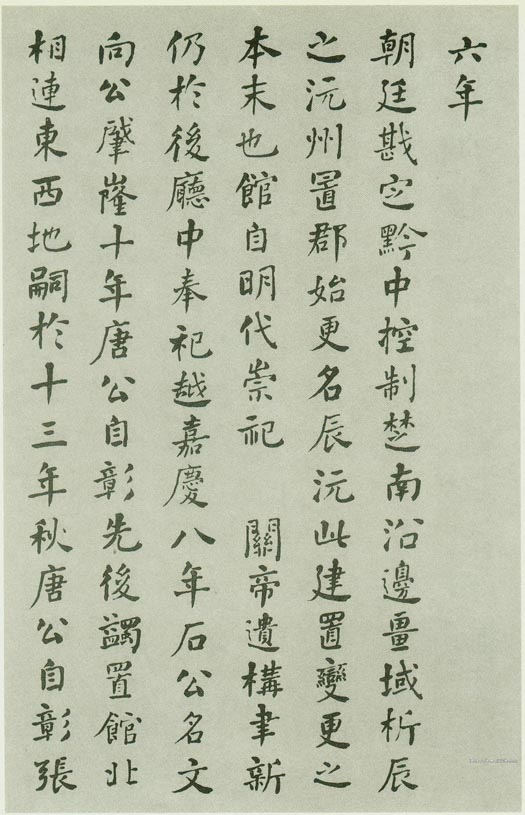 六年
朝廷戡定黔中控制楚南沿邊畺域析辰
之沅州置郡始更名辰沅此建置變更之
本末也館自明代崇祀　關帝遺構聿新
仍於後廳中奉祀越嘉慶八年石公名文
向公肇嶐十年唐公自彰先後蠲置館北
相連東西地嗣於十三年秋唐公自彰張